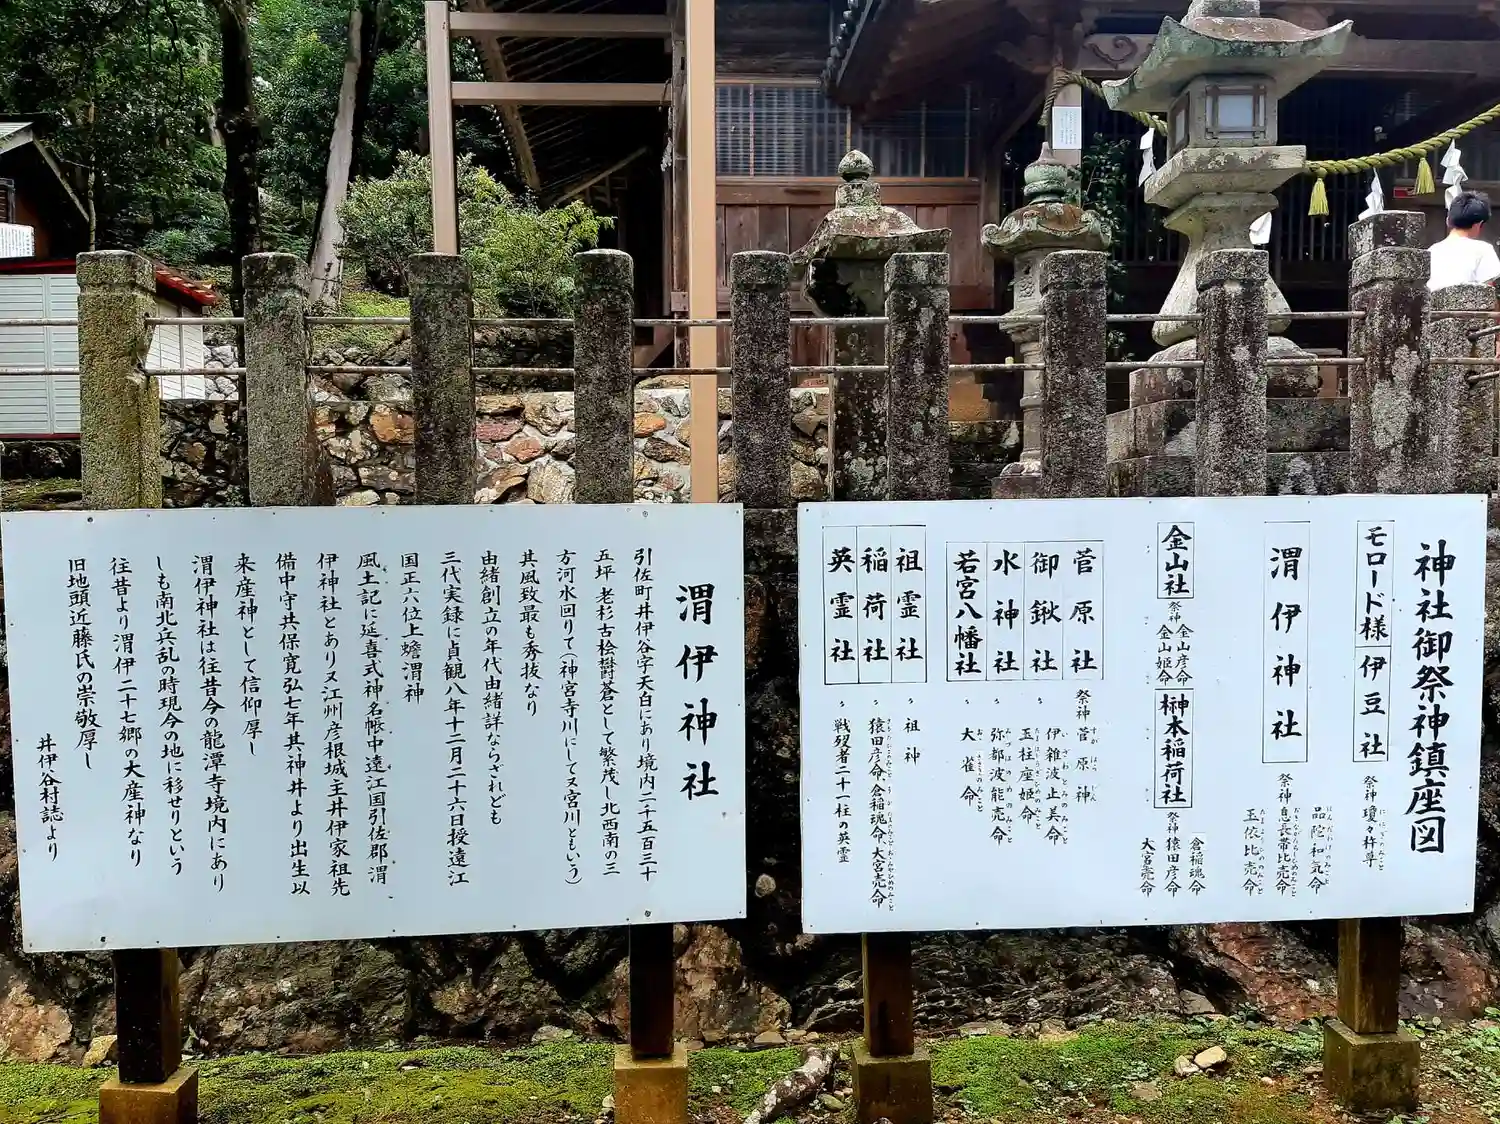 渭伊神社
引佐町井伊谷字天白にあり境内二千五百三十
五坪 老杉古桧欝蒼として繁茂し北西南の三
方河水回りて(神宮寺川にして又宮川ともいう)
其風致最も秀抜なり
由緒創立の年代由緒詳ならざれども
三代実録に貞観八年十二月二十六日授遠江
国正六位上蟾渭神
風土記に延喜式神名帳中遠江国引佐郡渭
伊神社とあり又江州彦根城主井伊家祖先
備中守共保寛弘七年其神井より出生以
来産神として信仰厚し
渭伊神社は往昔今の龍潭寺境内にあり
しも南北兵乱の時現今の地に移せりという
往昔より渭伊二十七郷の大産神なり
旧地頭近藤氏の崇敬厚し
井伊谷村誌より
神社御祭神鎮座図
モロード様
伊豆社
祭神 瓊々杵尊
渭伊神社
品陀和気命
祭神 息長帯比売命
玉依比売命
金山社
祭神 金山彦命
金山姫命
榊本稲荷社
倉稲魂命
祭神 猿田彦命
大宮売命
菅原社
祭神 菅原神
御鍬社
伊雑波止美命
玉柱座姫命
水神社
弥都波能売命
若宮八幡社
大雀命
祖霊社
祖神
稲荷社
猿田彦命 倉稲魂命 大宮売命
英霊社
戦歿者二十一柱の英霊